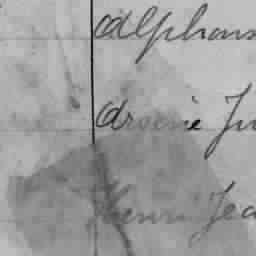 Alphons
Arsène Ju
Henri Jea